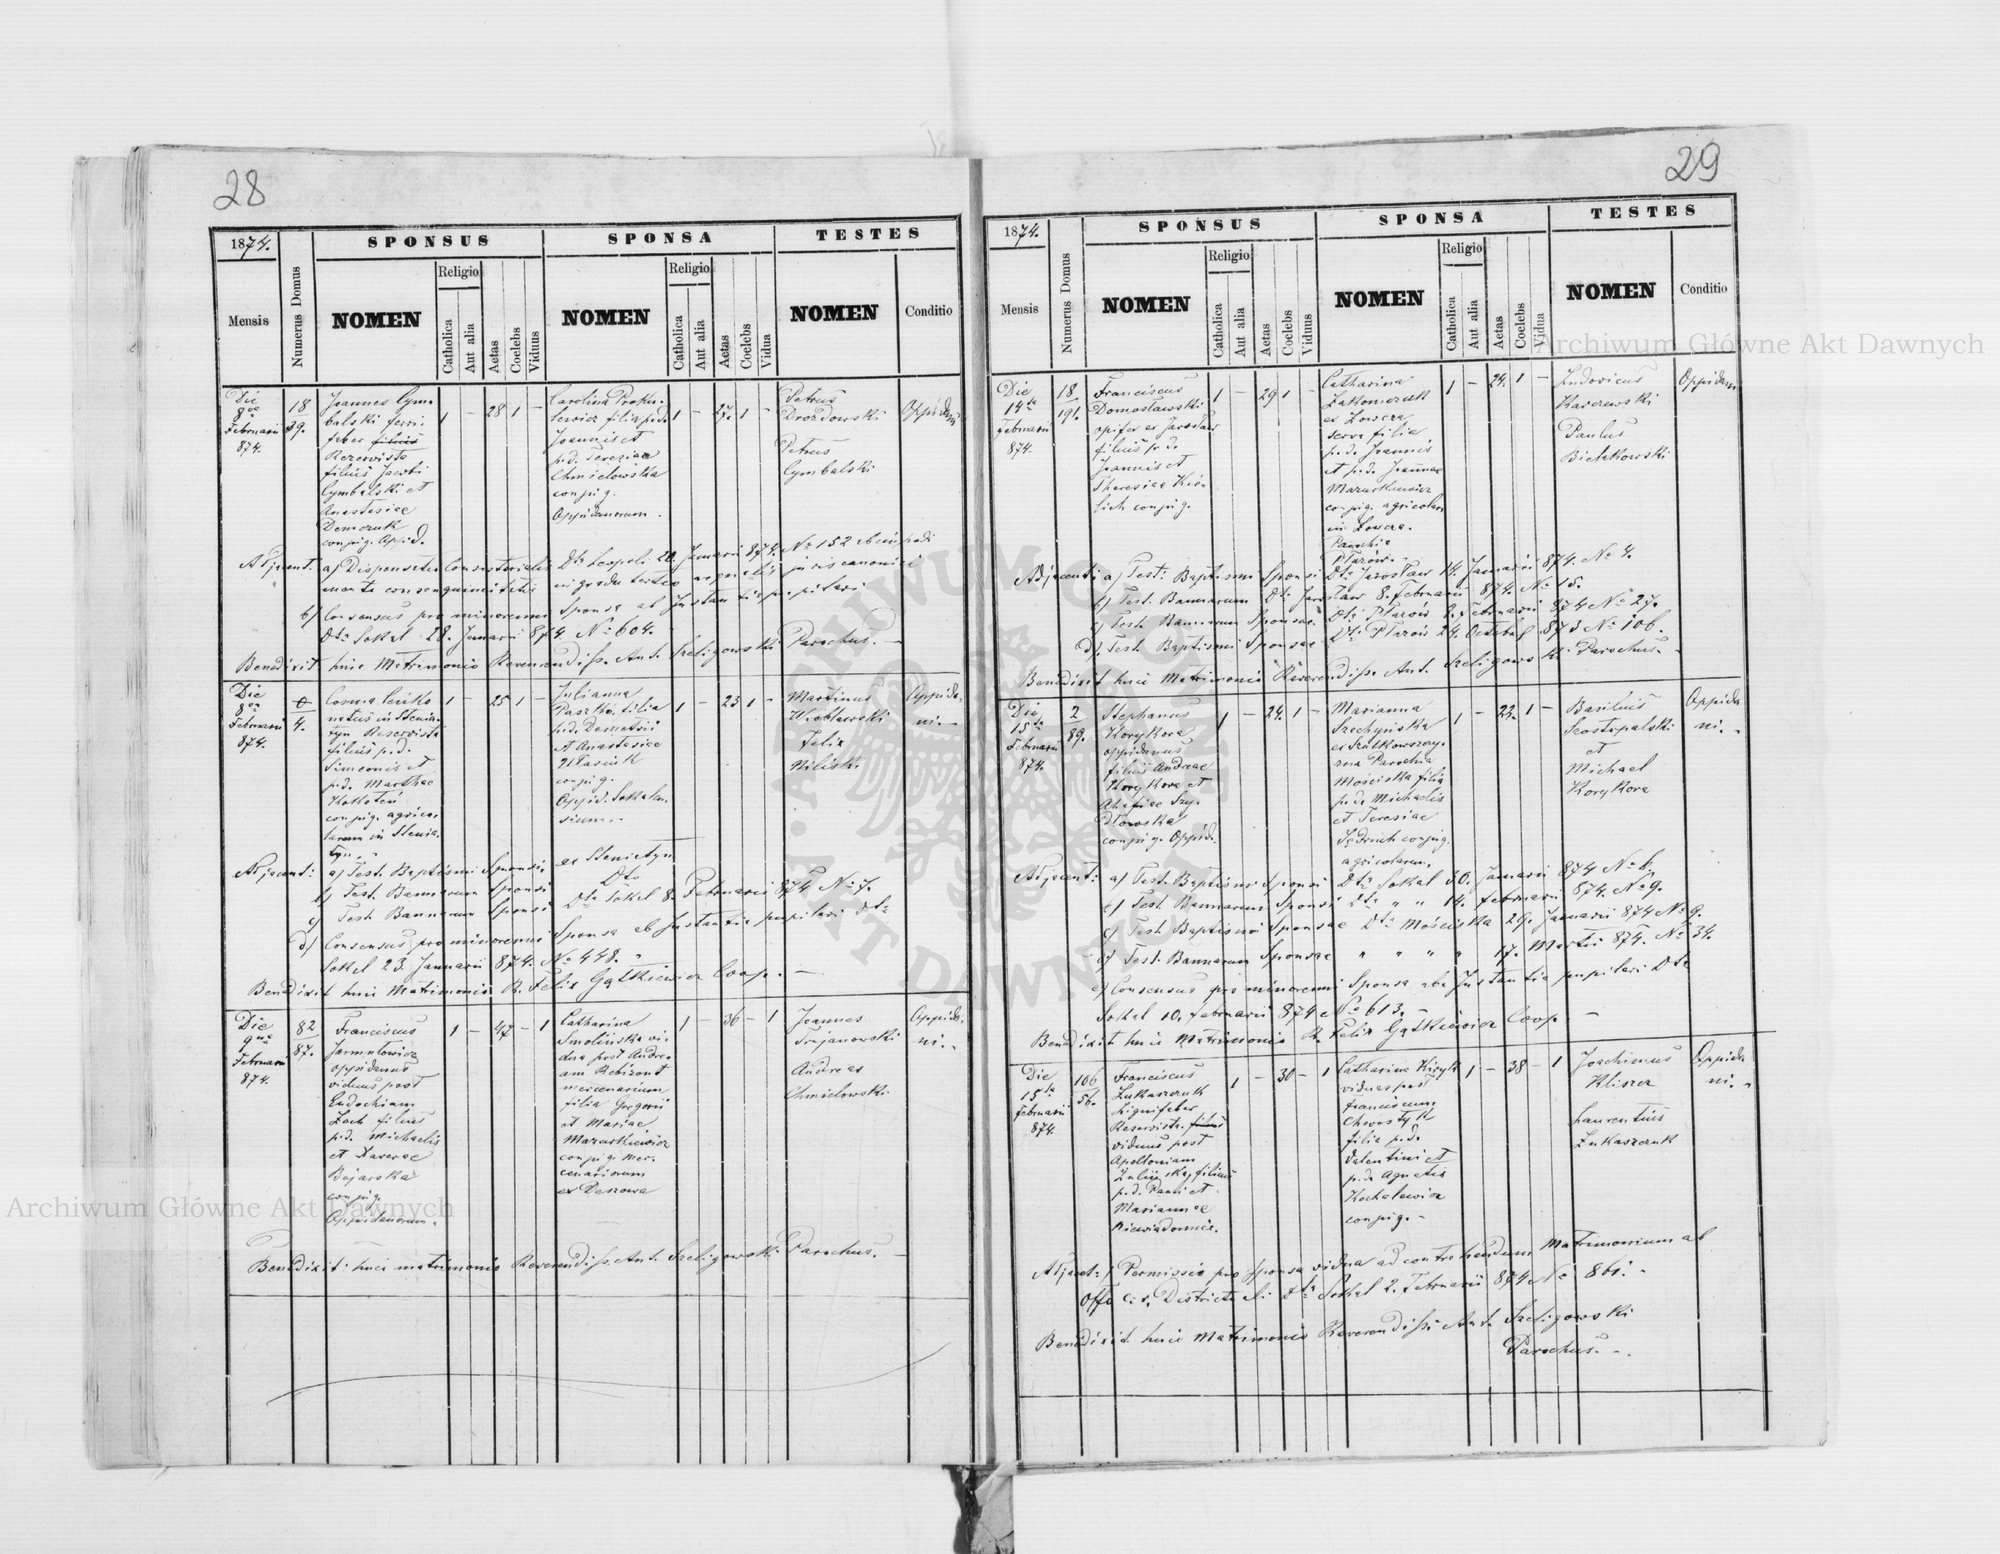 28
1874.
SPONSUS
SPONSA
TESTES
Mensis
Numerus Domus
NOMEN
Religio
Catholica
Aut alia
Aetas
Coelebs
Viduus
NOMEN
Religio
Catholica
Aut alia
Aetas
Coelebs
Vidua
NOMEN
Conditio
Die
8va
Februarii
874.
18
39.
Joannes Cym-
balski ferri-
faber
Reservista
filius Jacobi
Cymbalski et
Anastasiae
Demczuk
conjug. Oppid.
1 – 28 1 –
Carolina
filia p.d.
Joannis et
p.d. Teresiae
Chmielowska
conjug.
Oppidanorum.
1 – 27. 1 –
Petrus
Drozdowski
Petrus
Cymbalski
Adjacent. a) Dispensatio Consistorialis Dto Leopoli 20. Januarii 874. No 152
b) Consensus pro minorenni Sponsa ab Instantia pupilari
Dto Sokal 28. Januarii 874 No 604.
Benedixit huic Matrimonio Reverendiss. Ant. Szeligowski Parochus. –
Die
8va
Februarii
874.
0
4.
natus in Stenia-
tyn Reservista
filius p.d.
Simeonis et
p.d. Marthae
conjug. agrico-
larum in Stenia-
tyn.
1 – 25 1 –
Julianna
Paszko, filia
p.d. Demetrii
et Anastasiae
conjug.
Oppid. Sokalen-
sium. –
1 – 23 1 –
Martinus
Wroblewski
Felix
Niliski
Oppida-
ni. –
Adjacent: a) Test. Baptismi Sponsi, ex Steniatyn
b) Test. Bannorum Sponsi Dto
c) Test. Bannorum Sponsi Dto Sokal 8. Februarii 874 No 7.
d) Consensus pro minorenni Sponsa ab Instantia pupilari dto
Sokal 23. Januarii 874. No 448.
Benedixit huic Matrimonio R. Felix Gątkiewicz Coop. –
Die
9na
Februarii
874.
82
87.
Franciscus
Jarmutowicz
oppidanus
viduus post
Eudochiam
Zach filius
p.d. Michaelis
et Xaverae
Bojarska
conjug.
Oppidanorum.
1 – 47 – 1
Catharina
Smolinska vi-
dua post Andre-
am Rebizant
mercenarium
filia Gregorii
et Mariae
Mazurkiewicz
conjug. mer-
cenariorum
1 – 36 – 1
Joannes
Trojanowski
Andreas
Chmielowski
Oppida-
ni. –
Benedixit huic matrimonio Reverendiss. Ant. Szeligowski Parochus. –
29
1874.
SPONSUS
SPONSA
TESTES
Mensis
Numerus Domus
NOMEN
Religio
Catholica
Aut alia
Aetas
Coelebs
Viduus
NOMEN
Religio
Catholica
Aut alia
Aetas
Coelebs
Vidua
NOMEN
Conditio
Die
14ta
Februarii
874.
18
191.
Franciscus
Domosławski
opifex ex Jarosław
filius p.d.
Joannis et
Theresiae Kró-
lich conjug.
1 – 29 1 –
Catharina
serva filia
p.d. Joannis
et p.d. Joannae
Mazurkiewicz
conjug. agricolar.
Parochia
Płazów.
1 – 24. 1 –
Ludovicus
Karzewski
Paulus
Bielakowski
Adjacent: a) Test: Baptismi Sponsi Dto Jarosław 14. Januarii 874. No 4.
b) Test. Bannorum Dto Jarosław 8. Februarii 874. No 15.
c) Test. Bannorum Sponsae Dto Płazów 8. Februarii 874 No 27.
d) Test. Baptismi Sponsae Dto Płazów 24. Octobris 873 No 106.
Benedixit huic Matrimonio Reverendiss. Ant. Szeligowski Parochus. –
Die
15ta
Februarii
874.
2
89.
Stephanus
Korykora
oppidanus
filius Andreae
Korykora et
Ahafiae Szy-
dłowska
conjug. Oppid.
1 – 24. 1 –
Marianna
Szechyńska
Parochia
Mościska filia
p.d. Michaelis
et Teresiae
conjug.
agricolarum.
1 – 22. 1 –
Basilius
Szostopalski
et
Michael
Korykora
Oppida
ni. –
Adjacent: a) Test. Baptismi Sponsi Dto Sokal 30. Januarii 874 No 6.
b) Test. Bannorum Sponsi Dto " " 14. Februarii 874. No 9.
c) Test. Baptismi Sponsae Dto Mościska 29. Januarii 874 No 9.
d) Test. Bannorum Sponsae " " " " 17. Martii 874. No 34.
e) Consensus pro minorenni Sponsa ab Instantia pupilari Dto
Sokal 10. Februarii 874 No 613. –
Benedixit huic Matrimonio R. Felix Gątkiewicz Coop. –
Die
15ta
Februarii
874.
106
56.
Franciscus
Łukaszczuk
lignifaber
Reservista
viduus post
Apolloniam
filius
p.d. Pauli et
Mariannae
Niewiadomia.
1 – 30 – 1
Catharina Kiryk
vidua post
Franciscum
Chwostyk
filia p.d.
Valentini et
p.d. Agnetis
Kochalewicz
conjug. –
1 – 38 – 1
Joachimus
Kliszcz
Laurentius
Łukaszczuk
Oppida
ni. –
Adjacet: Permissio pro sponsa vidua ad contrahendum Matrimonium ab
Offo Dto Sokal 2. Februarii 874 No 861. –
Benedixit huic Matrimonio Reverendiss. Ant. Szeligowski
Parochus. –
Archiwum Główne Akt Dawnych
Archiwum Główne Akt Dawnych
ARCHIWUM GŁÓWNE AKT DAWNYCH